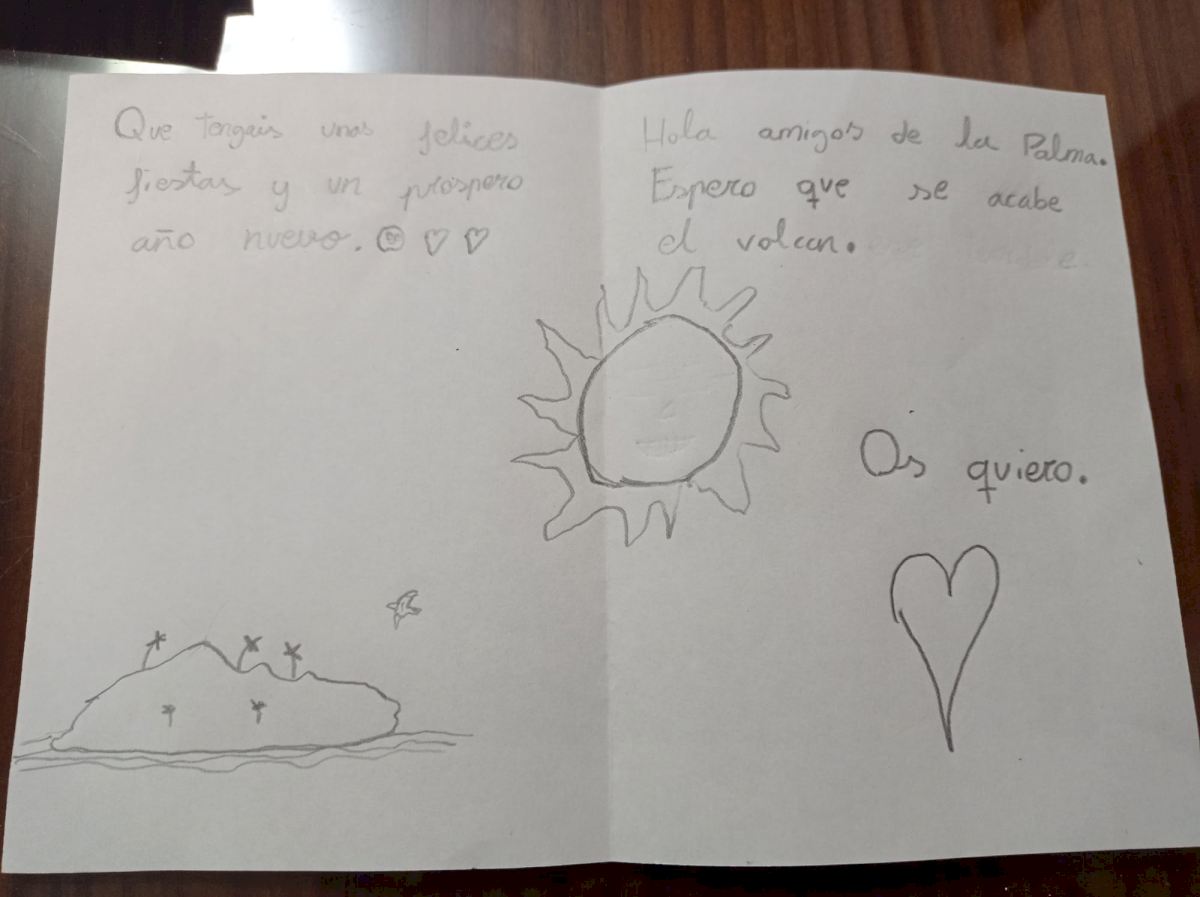 Que tengais unas felices
fiestas y un próspero
año nuevo.
Hola amigos de la Palma.
Espero que se acabe
el volcan.
Os quiero.